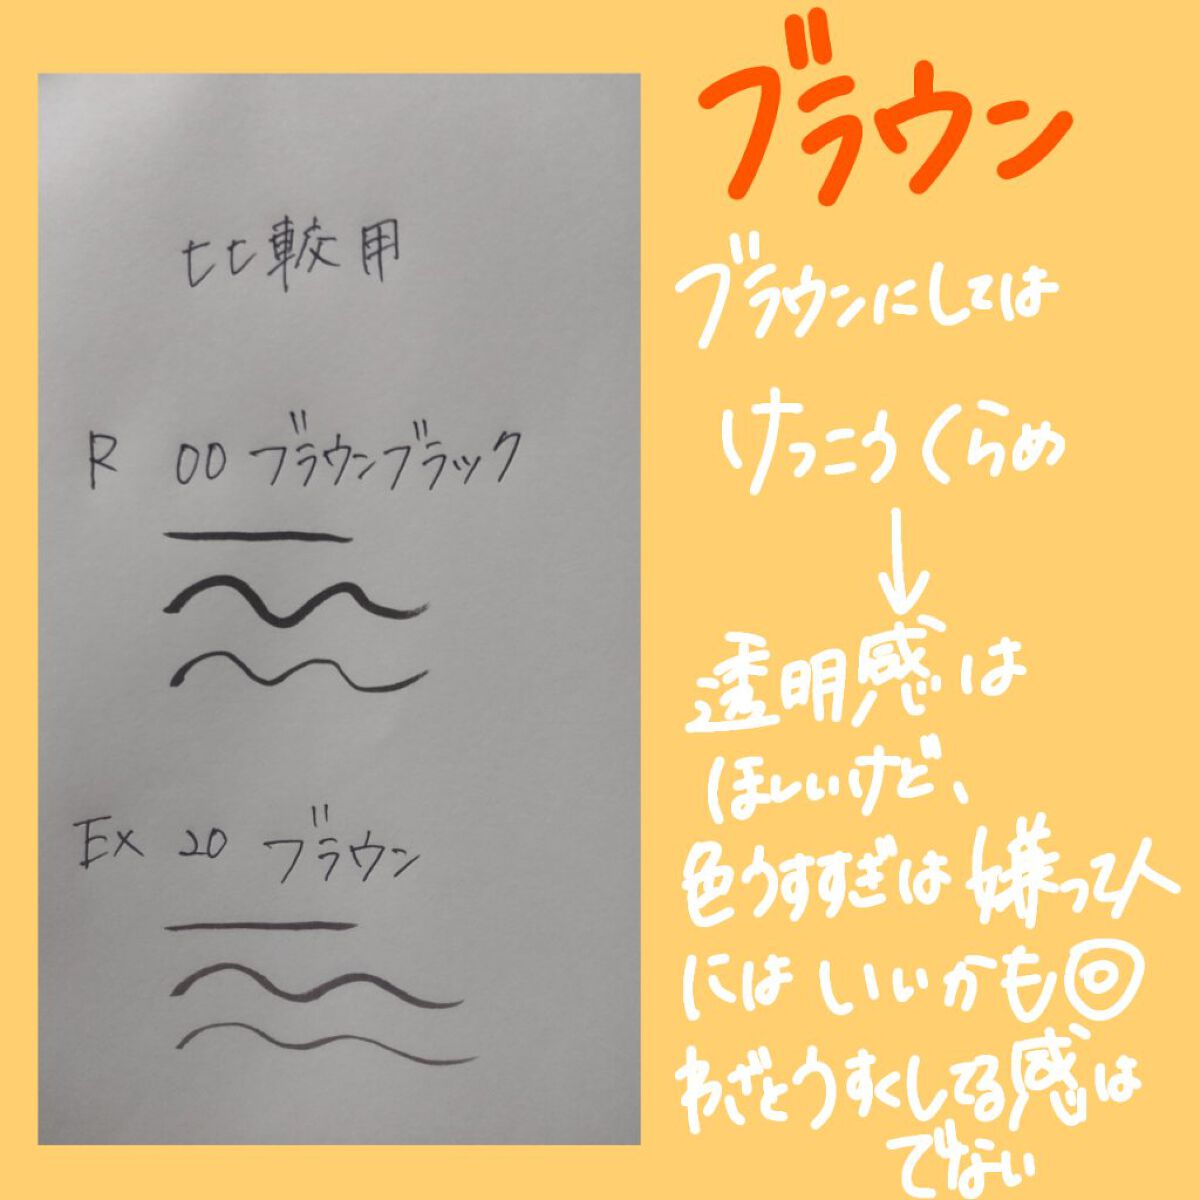 比較用
R 00 ブラウンブラック
Ex 20 ブラウン
ブラウン
ブラウンにしては
けっこうくらめ
↓
透明感は
ほしいけど、
色うすすぎは嫌って人
にはいいかも◎
わざとうすくしてる感は
でない